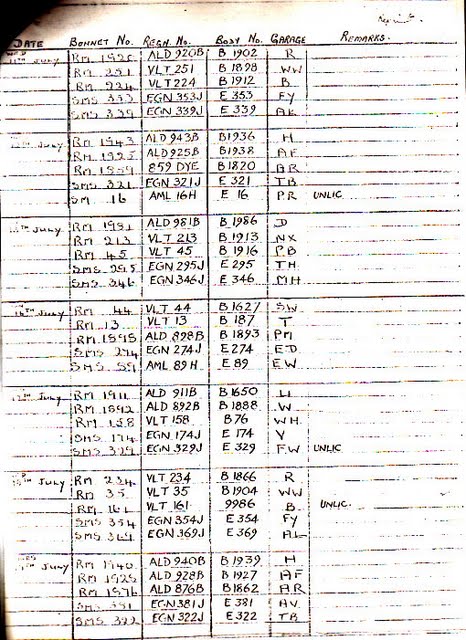 Reprint.
DATE BONNET No. REGN. No. BODY No. GARAGE REMARKS.
July RM 1920 ALD 920B B 1902 R
RM 251 VLT 251 B 1898 WW
RM 224 VLT 224 B 1912 B
SMS 353 EGN 353J E 353 FY
SMS 339 EGN 339J E 339 AK
July RM 1943 ALD 943B B 1936 H
RM 1925 ALD 925B B 1938 AF
RM 1859 859 DYE B 1820 AR
SMS 321 EGN 321J E 321 TB
SM 16 AML 16H E 16 PR UNLIC
July RM 1981 ALD 981B B 1986 D
RM 213 VLT 213 B 1913 NX
RM 45 VLT 45 B 1916 PB
SMS 295 EGN 295J E 295 TH
SMS 346 EGN 346J E 346 MH
July RM 44 VLT 44 B 1627 SW
RM 13 VLT 13 B 187 T
RM 1898 ALD 898B B 1893 PM
SMS 274 EGN 274J E 274 ED
SMS 89 AML 89H E 89 EW
July RM 1911 ALD 911B B 1650 U
RM 1892 ALD 892B B 1888 W
RM 158 VLT 158 B 76 WH
SMS 174 EGN 174J E 174 V
SMS 329 EGN 329J E 329 FW UNLIC
July RM 234 VLT 234 B 1866 R
RM 35 VLT 35 B 1904 WW
RM 161 VLT 161 9986 B UNLIC.
SMS 354 EGN 354J E 354 FY
SMS 369 EGN 369J E 369 AL
July RM 1940 ALD 940B B 1939 H
RM 1928 ALD 928B B 1927 AF
RM 1876 ALD 876B B 1862 AR
SMS 381 EGN 381J E 381 AV
SMS 322 EGN 322J E 322 TB